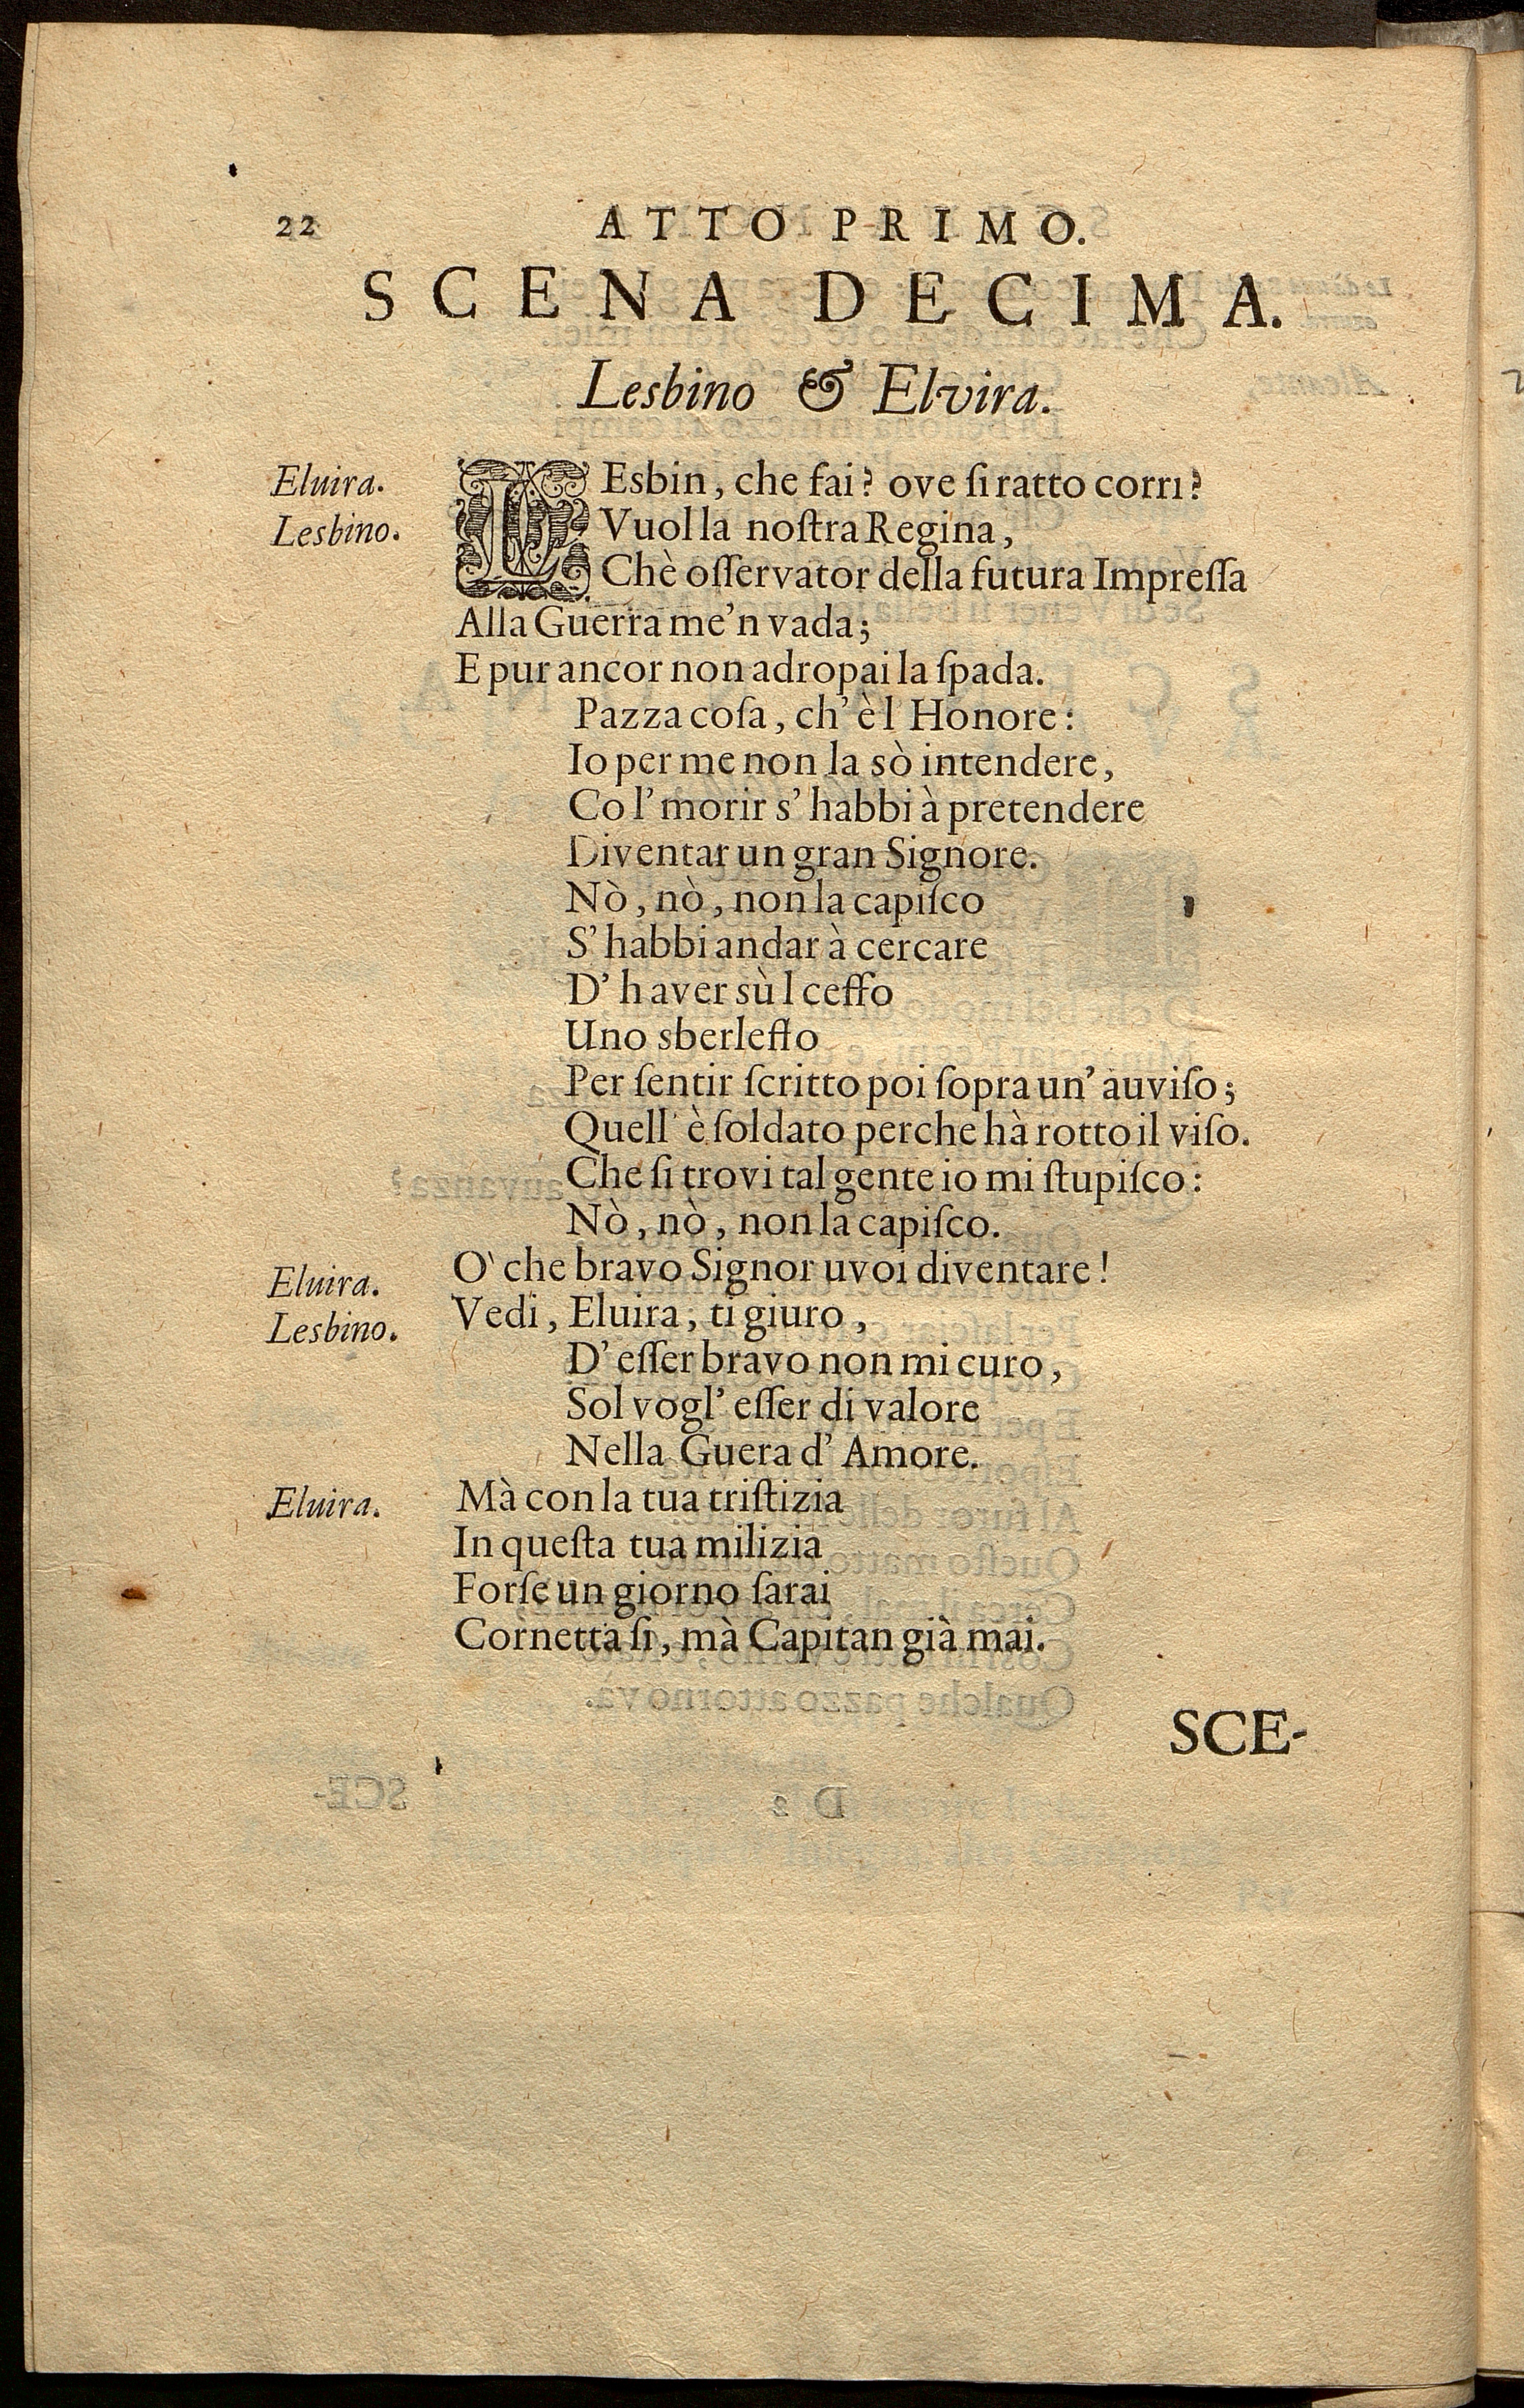 22 ATTO PRIMO.
SCENA DECIMA.
Lesbino & Elvira.
Eluira. LEsbin, che fai? ove ſi ratto corri?
Lesbino. Vuol la noſtra Regina,
Chè oſſervator della futura Impreſſa
Alla Guerra me'n vada;
E pur ancor non adropai la ſpada.
Pazza coſa, ch'è l Honore:
Io per me non la sò intendere,
Co l'morir s'habbi à pretendere
Diventar un gran Signore.
Nò, nò, non la capiſco
S'habbi andar à cercare
D'haver sù l ceffo
Uno sberleffo
Per ſentir ſcritto poi ſopra un'auviſo;
Quell'è ſoldato perche hà rotto il viſo.
Che ſi trovi tal gente io mi ſtupiſco:
Nò, nò, non la capiſco.
Eluira. O' che bravo Signor uvoi diventare!
Lesbino. Vedi, Eluira, ti giuro,
D'eſſer bravo non mi curo,
Sol vogl'eſſer di valore
Nella Guera d'Amore.
Eluira. Mà con la tua triſtizia
In queſta tua milizia
Forſe un giorno ſarai
Cornetta ſi, mà Capitan già mai.
SCE-